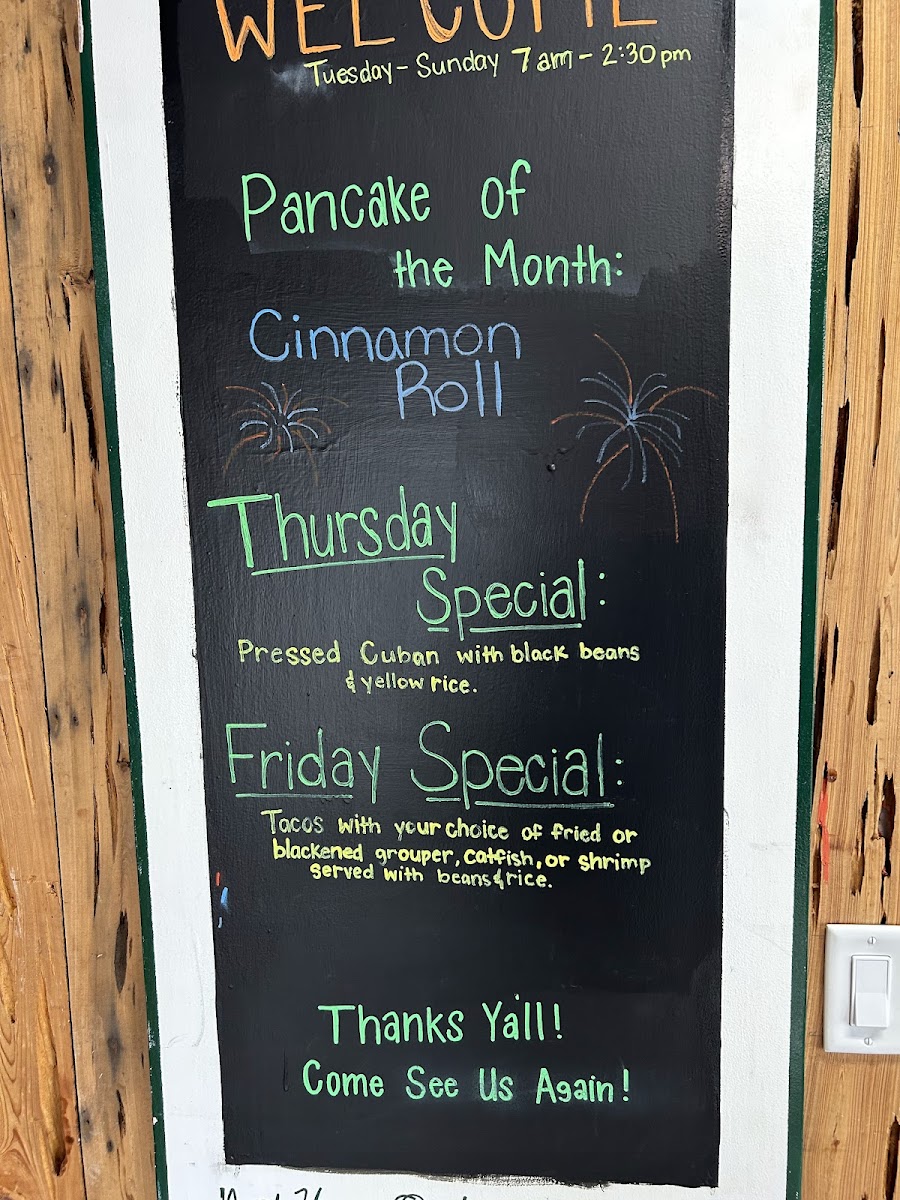 WELCOME
Tuesday - Sunday 7am - 2:30 pm
Pancake of
the Month:
Cinnamon
Roll
Thursday
Special:
Pressed Cuban with black beans
& yellow rice.
Friday Special:
Tacos with your choice of fried or
blackened grouper, catfish, or shrimp
served with beans & rice.
Thanks Ya'll!
Come See Us Again!